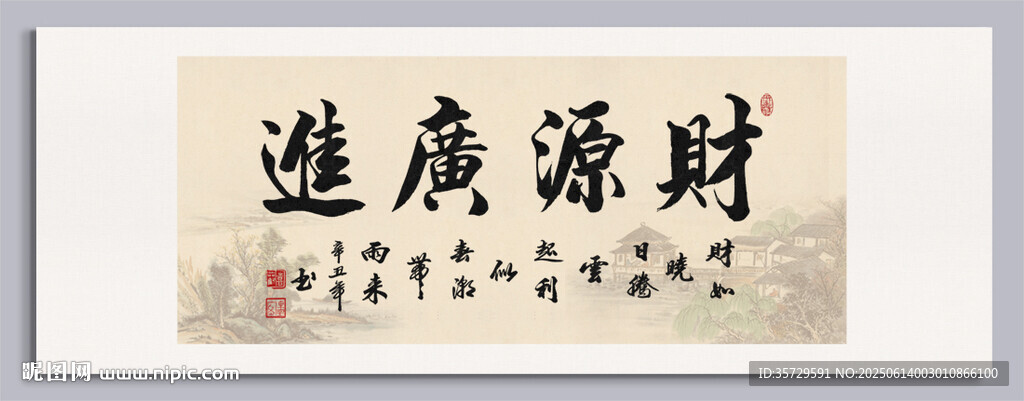 財源廣進
財如
曉
日騰
雲
起利
似
春潮
帶
雨来
辛丑年
书
昵图网 www.nipic.com
ID:35729591 NO:20250614003010866100